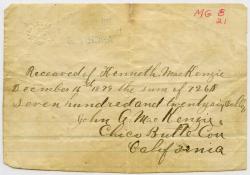 MG E
21
Received of Kenneth MacKenzie
December 16th 1879 the sum of 726$
Seven hundred and twenty six Dollars
John G. MacKenzie
Chico Butte Cou
California